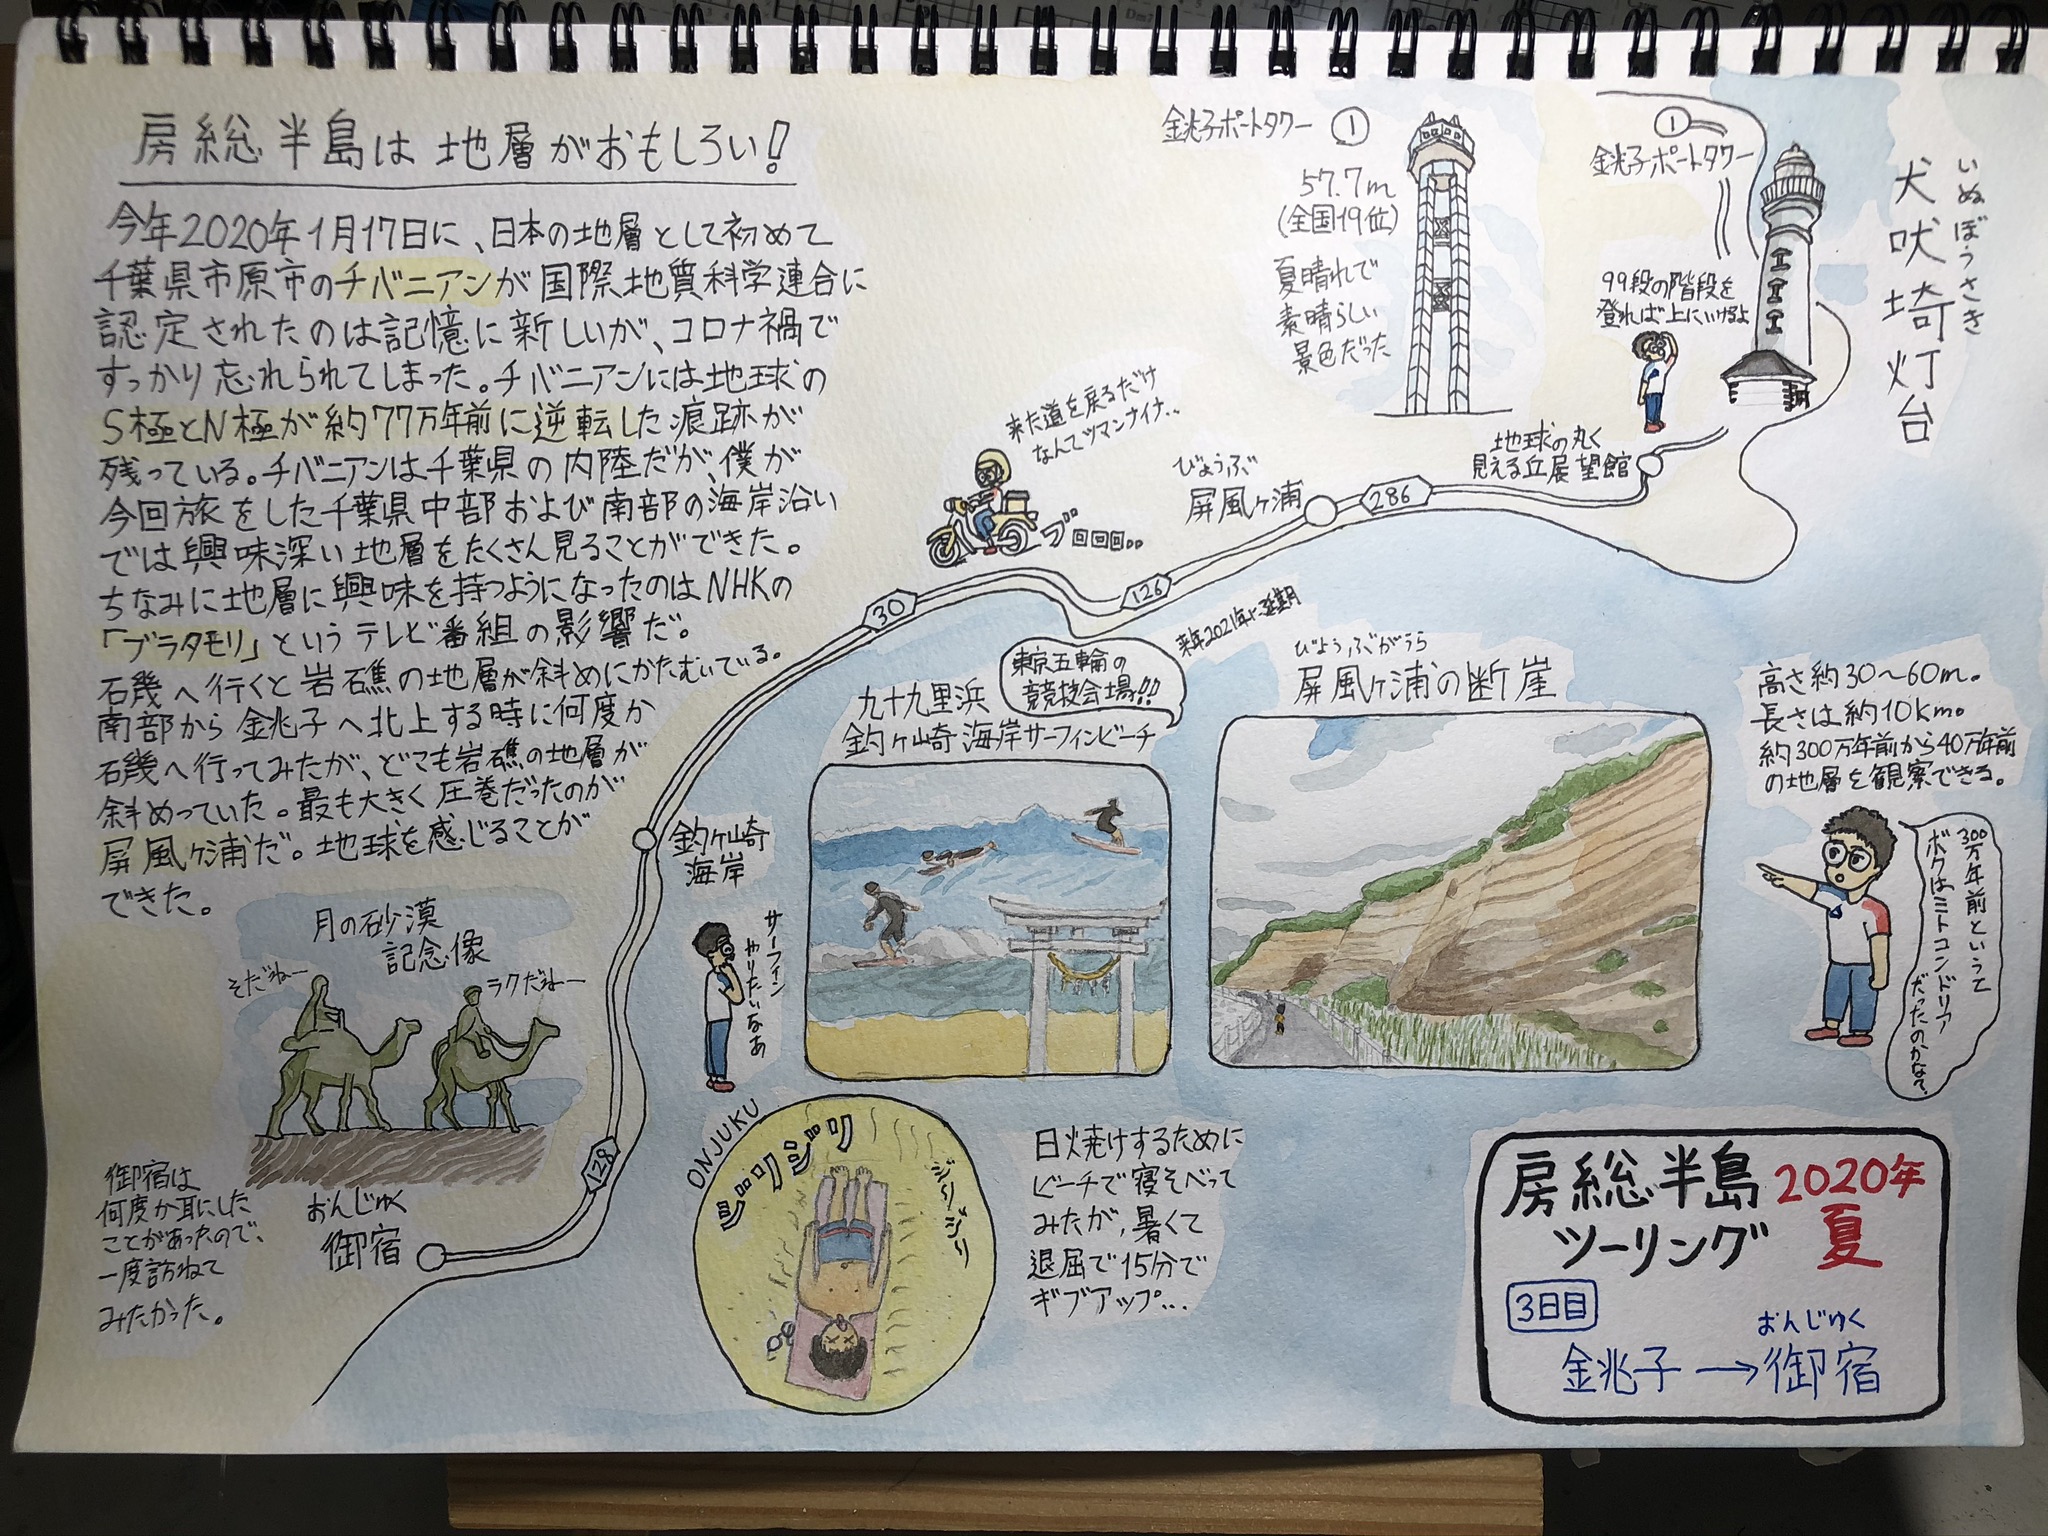 房総半島は地層がおもしろい!
今年2020年1月17日に、日本の地層として初めて
千葉県市原市のチバニアンが国際地質科学連合に
認定されたのは記憶に新しいが、コロナ禍で
すっかり忘れられてしまった。チバニアンには地球の
S極とN極が約77万年前に逆転した痕跡が
残っている。チバニアンは千葉県の内陸だが、僕が
今回旅をした千葉県中部および南部の海岸沿い
では興味深い地層をたくさん見ることができた。
ちなみに地層に興味を持つようになったのはNHKの
「ブラタモリ」というテレビ番組の影響だ。
石幾へ行くと岩礁の地層が斜めにかたむいている。
南部から銚子へ北上する時に何度か
石幾へ行ってみたが、どこも岩礁の地層が
斜めっていた。最も大きく圧巻だったのが
屏風ヶ浦だ。地球を感じることが
できた。
月の砂漠
記念像
そだねー
ラクだねー
御宿は
何度か耳にした
ことがあったので、
一度訪ねて
みたかった。
おんじゅく
御宿
128
銚子ポートタワー ①
57.7m
(全国19位)
夏晴れで
素晴らしい
景色だった
①
銚子ポートタワー
いぬぼうさき
犬吠埼灯台
99段の階段を
登れば上にいけるよ
地球の丸く
見える丘展望館
286
びょうぶ
屏風ヶ浦
来た道を戻るだけ
なんてツマンナイナ..
ブロロロ..
126
30
釣ヶ崎
海岸
サーフィン
やりたいなあ
来年2021年に延期
東京五輪の
競技会場!!
九十九里浜
釣ヶ崎海岸サーフィンビーチ
びょうぶがうら
屏風ヶ浦の断崖
高さ約30〜60m。
長さは約10km。
約300万年前から40万年前
の地層を観察できる。
300万年前というて
ボクはミトコンドリア
だったのかな?
ONJUKU
ジリジリ
ジリジリ
日焼けするために
ビーチで寝そべって
みたが、暑くて
退屈で15分で
ギブアップ...
房総半島 2020年
ツーリング 夏
3日目
おんじゅく
銚子→御宿